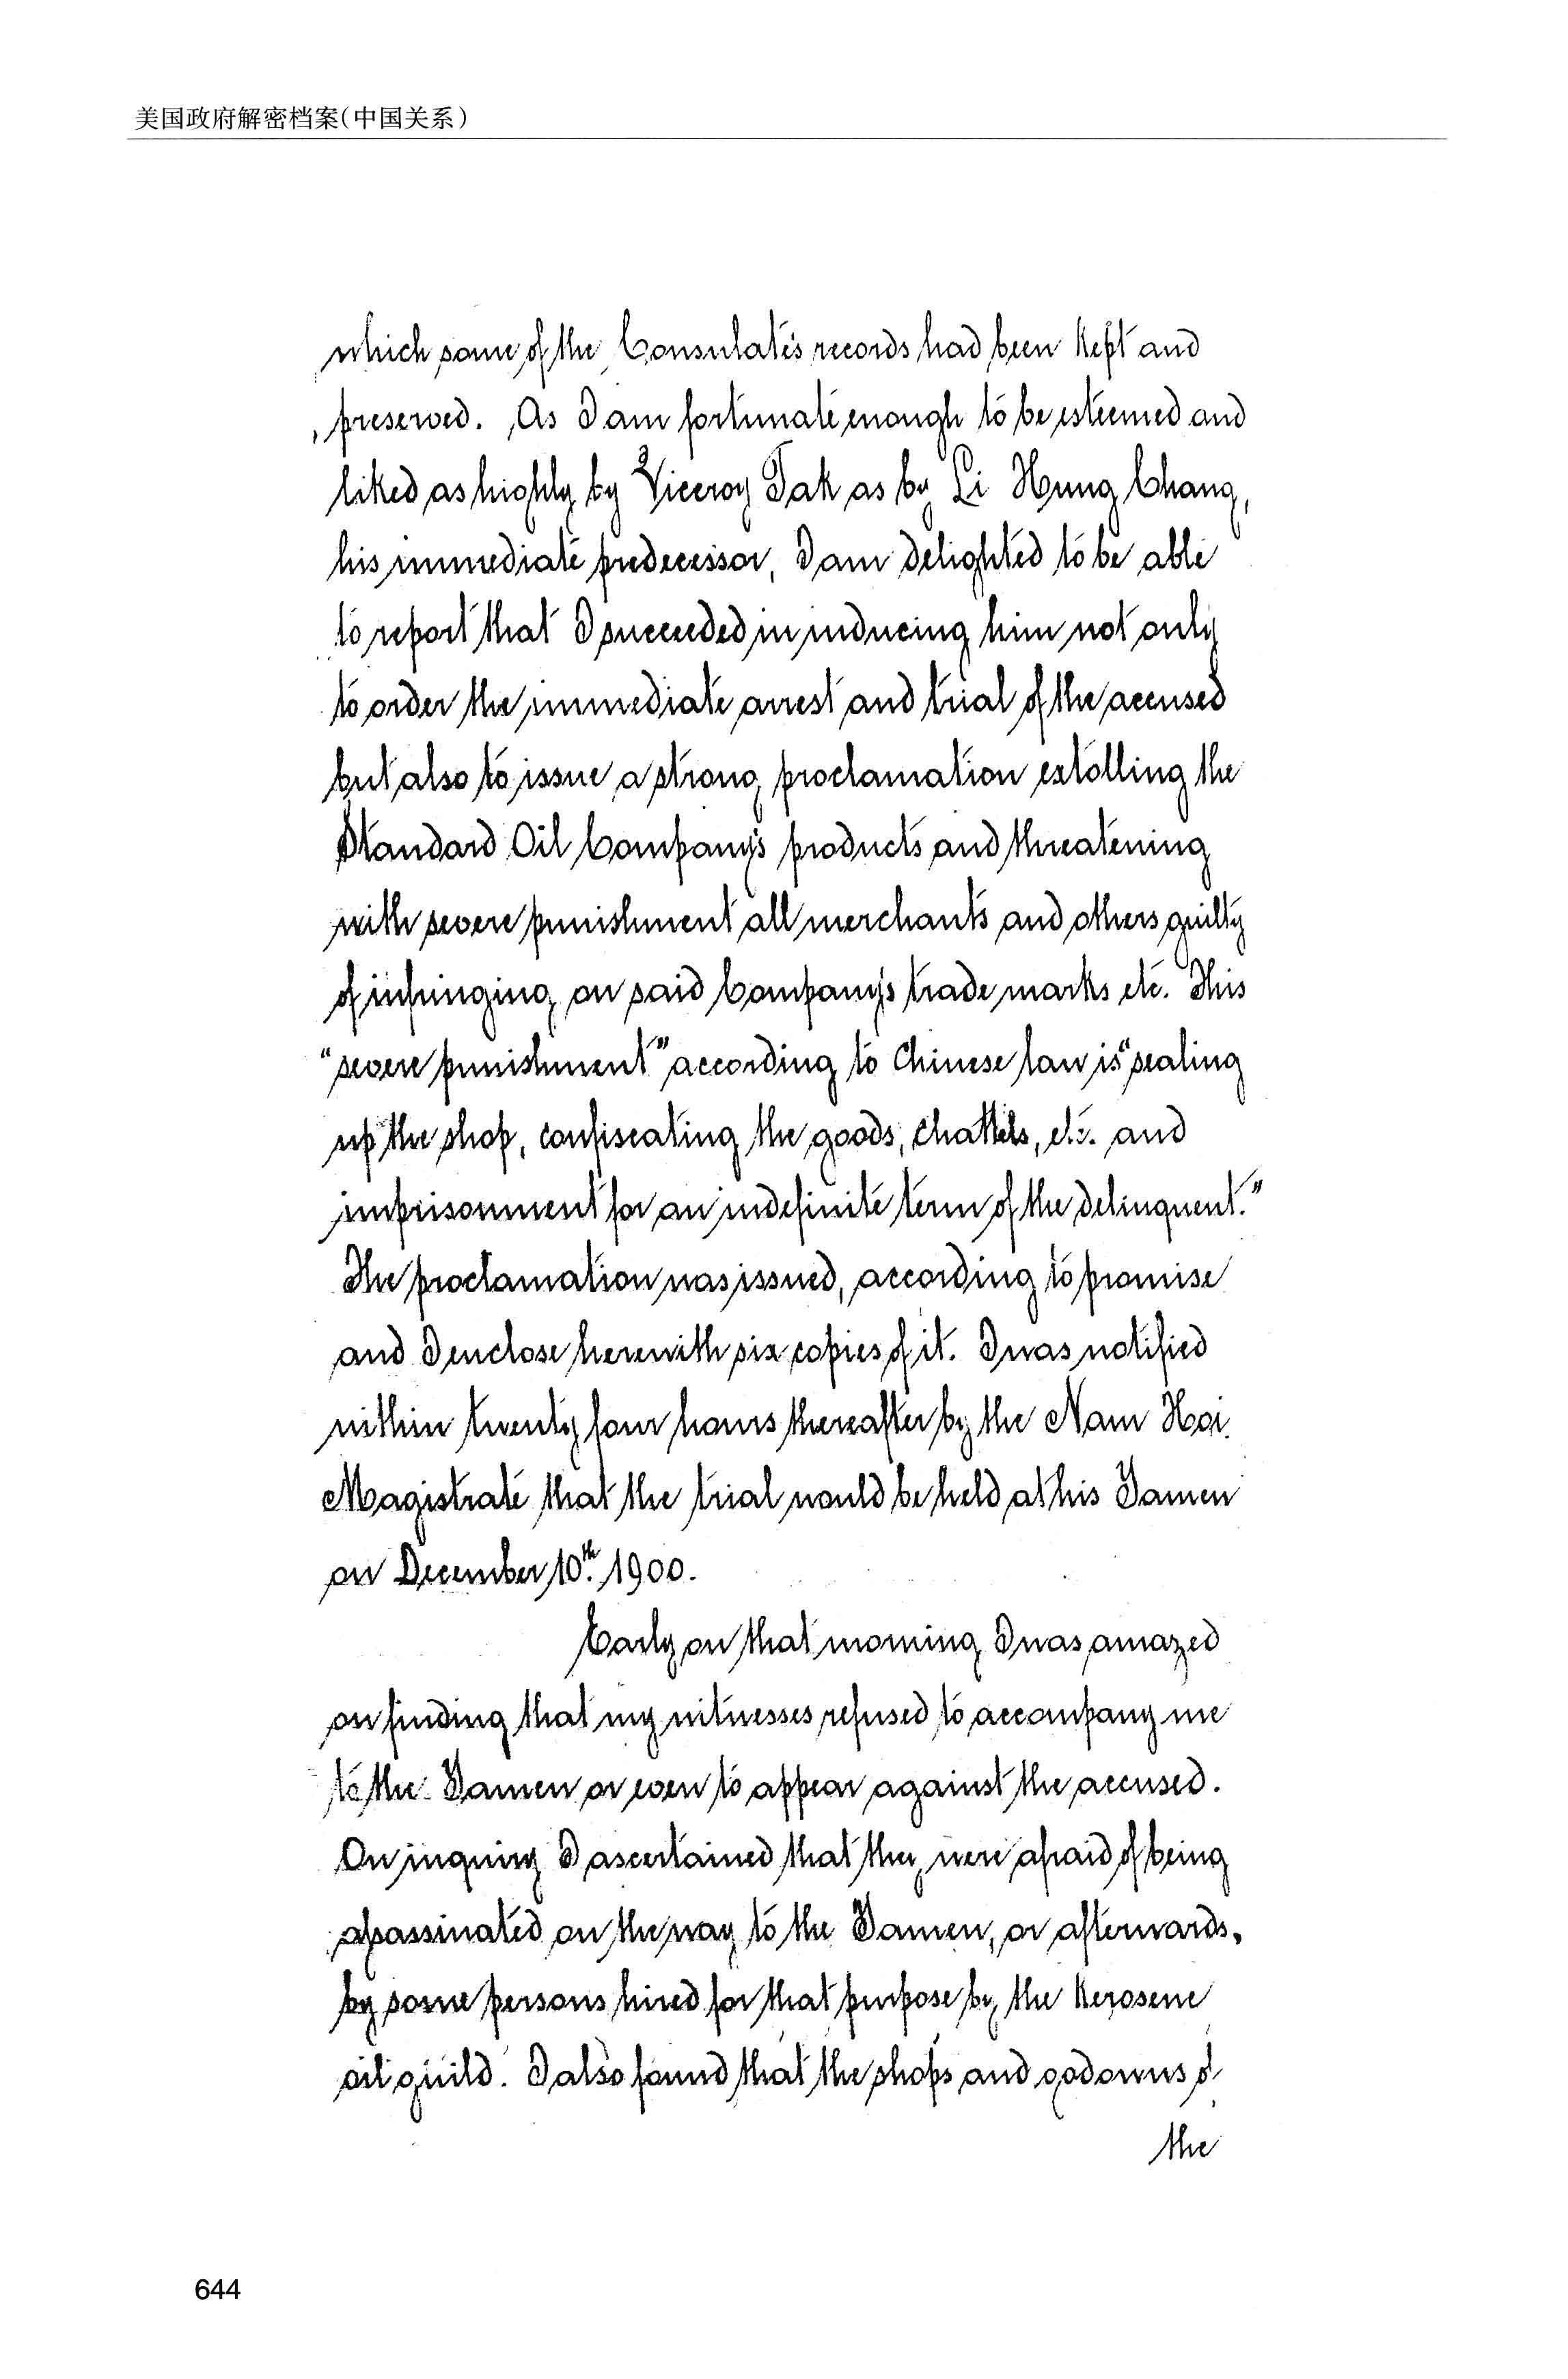 美国政府解密档案(中国关系)
which some of the Consulate's records had been kept and
preserved. As I am fortunate enough to be esteemed and
liked as highly by Viceroy Tak as by Li Hung Chang,
his immediate predecessor, I am delighted to be able
to report that I succeeded in inducing him not only
to order the immediate arrest and trial of the accused
but also to issue a strong proclamation extolling the
Standard Oil Company's products and threatening
with severe punishment all merchants and others guilty
of infringing on said Company's trade marks etc. This
"severe punishment" according to Chinese law is "sealing
up the shop, confiscating the goods, chattels, etc. and
imprisonment for an indefinite term of the delinquent."
The proclamation was issued, according to promise
and I enclose herewith six copies of it. I was notified
within twenty four hours thereafter by the Nam Hoi
Magistrate that the trial would be held at his Yamen
on December 10th. 1900.
Early on that morning I was amazed
on finding that my witnesses refused to accompany me
to the Yamen or even to appear against the accused.
On inquiry I ascertained that they were afraid of being
assassinated on the way to the Yamen, or afterwards,
by some persons hired for that purpose by the Kerosene
oil guild. I also found that the shops and godowns of
the
644